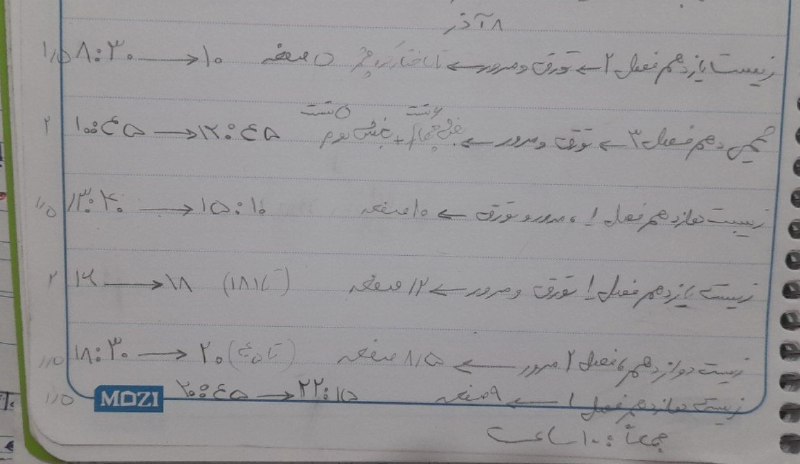 ۸ آذر
زیست یازدهم فصل ۲ ← تورق و مرور ← تا ساختار ۵ صفحه ۸:۳۰ → ۱۰ ۱/۵
شیمی دهم فصل ۳ ← تورق و مرور ← بخش چهارم + بخش دوم ۱۰:۴۵ → ۱۲:۴۵ ۲
زیست دوازدهم فصل ۱، مرور و تورق ← ۱۰ صفحه ۱۳:۴۰ → ۱۵:۱۰ ۱/۵
زیست یازدهم فصل ۱ تورق و مرور ← ۱۲ صفحه (تا ۱۸) ۱۶ → ۱۸ ۲
زیست دوازدهم، فصل ۲ مرور ← ۸/۵ صفحه (تا ۴۵) ۱۸:۳۰ → ۲۰ ۱/۵
زیست دوازدهم فصل ۱ ← ۹ صفحه ۲۰:۴۵ → ۲۲:۱۵ ۱/۵
MOZI
جمعاً: ۱۰ ساعت